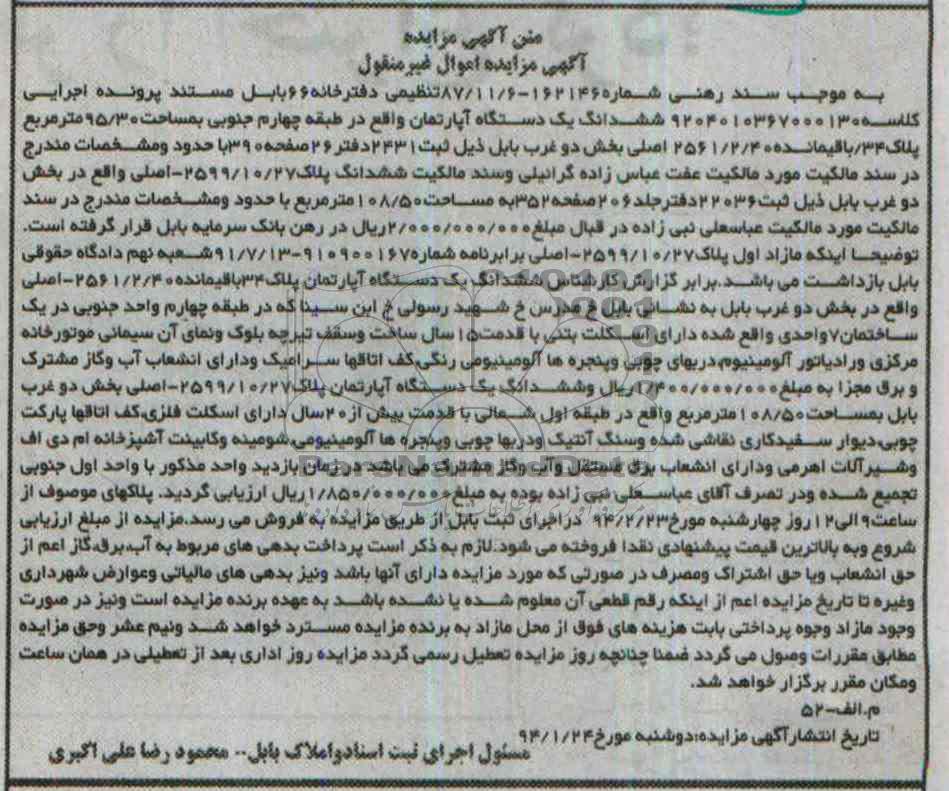 متن آگهی مزایده
آگهی مزایده اموال غیرمنقول
به موجب سند رهنی شماره۱۶۲۱۴۶-۸۷/۱۱/۶تنظیمی دفترخانه۶۶بابل مستند پرونده اجرایی
کلاسه۹۲۰۴۰۱۰۳۶۷۰۰۰۱۳۰ ششدانگ یک دستگاه آپارتمان واقع در طبقه چهارم جنوبی بمساحت۹۵/۳۰مترمربع
پلاک۳۴/باقیمانده۲۵۶۱/۲/۴۰ اصلی بخش دو غرب بابل ذیل ثبت۲۴۳۱دفتر۲۶صفحه۳۹۰با حدود ومشخصات مندرج
در سند مالکیت مورد مالکیت عفت عباس زاده گرائیلی وسند مالکیت ششدانگ پلاک۲۵۹۹/۱۰/۲۷-اصلی واقع در بخش
دو غرب بابل ذیل ثبت۲۲۰۳۶دفترجلد۲۰۶صفحه۳۵۲به مساحت۱۰۸/۵۰مترمربع با حدود ومشخصات مندرج در سند
مالکیت مورد مالکیت عباسعلی نبی زاده در قبال مبلغ۲/۰۰۰/۰۰۰/۰۰۰ریال در رهن بانک سرمایه بابل قرار گرفته است.
توضیحا اینکه مازاد اول پلاک۲۵۹۹/۱۰/۲۷-اصلی برابرنامه شماره۹۱۰۹۰۰۱۶۷-۹۱/۷/۱۳شعبه نهم دادگاه حقوقی
بابل بازداشت می باشد.برابر گزارش کارشناس ششدانگ یک دستگاه آپارتمان پلاک۳۴باقیمانده۲۵۶۱/۲/۴۰-اصلی
واقع در بخش دو غرب بابل به نشانی بابل خ مدرس خ شهید رسولی خ ابن سینا که در طبقه چهارم واحد جنوبی در یک
ساختمان۷واحدی واقع شده دارای اسکلت بتنی با قدمت۱۵سال ساخت وسقف تیرچه بلوک ونمای آن سیمانی موتورخانه
مرکزی ورادیاتور آلومینیوم،دربهای چوبی وپنجره ها آلومینیومی رنگی،کف اتاقها سرامیک ودارای انشعاب آب وگاز مشترک
و برق مجزا به مبلغ۱/۴۰۰/۰۰۰/۰۰۰ریال وششدانگ یک دستگاه آپارتمان پلاک۲۵۹۹/۱۰/۲۷-اصلی بخش دو غرب
بابل بمساحت۱۰۸/۵۰مترمربع واقع در طبقه اول شمالی با قدمت بیش از۲۰سال دارای اسکلت فلزی،کف اتاقها پارکت
چوبی،دیوار سفیدکاری نقاشی شده وسنگ آنتیک ودربها چوبی وپنجره ها آلومینیومی،شومینه وکابینت آشپزخانه ام دی اف
وشیرآلات اهرمی ودارای انشعاب برق مستقل وآب وگاز مشترک می باشد در زمان بازدید واحد مذکور با واحد اول جنوبی
تجمیع شده ودر تصرف آقای عباسعلی نبی زاده بوده به مبلغ۱/۸۵۰/۰۰۰/۰۰۰ریال ارزیابی گردید. پلاکهای موصوف از
ساعت۹الی۱۲روز چهارشنبه مورخ۹۴/۲/۲۳ دراجرای ثبت بابل از طریق مزایده به فروش می رسد.مزایده از مبلغ ارزیابی
شروع وبه بالاترین قیمت پیشنهادی نقدا فروخته می شود.لازم به ذکر است پرداخت بدهی های مربوط به آب،برق،گاز اعم از
حق انشعاب ویا حق اشتراک ومصرف در صورتی که مورد مزایده دارای آنها باشد ونیز بدهی های مالیاتی وعوارض شهرداری
وغیره تا تاریخ مزایده اعم از اینکه رقم قطعی آن معلوم شده یا نشده باشد به عهده برنده مزایده است ونیز در صورت
وجود مازاد وجوه پرداختی بابت هزینه های فوق از محل مازاد به برنده مزایده مسترد خواهد شد ونیم عشر وحق مزایده
مطابق مقررات وصول می گردد ضمنا چنانچه روز مزایده تعطیل رسمی گردد مزایده روز اداری بعد از تعطیلی در همان ساعت
ومکان مقرر برگزار خواهد شد.
م.الف-۵۲
تاریخ انتشارآگهی مزایده:دوشنبه مورخ۹۴/۱/۲۴
مسئول اجرای ثبت اسنادواملاک بابل-- محمود رضا علی اکبری